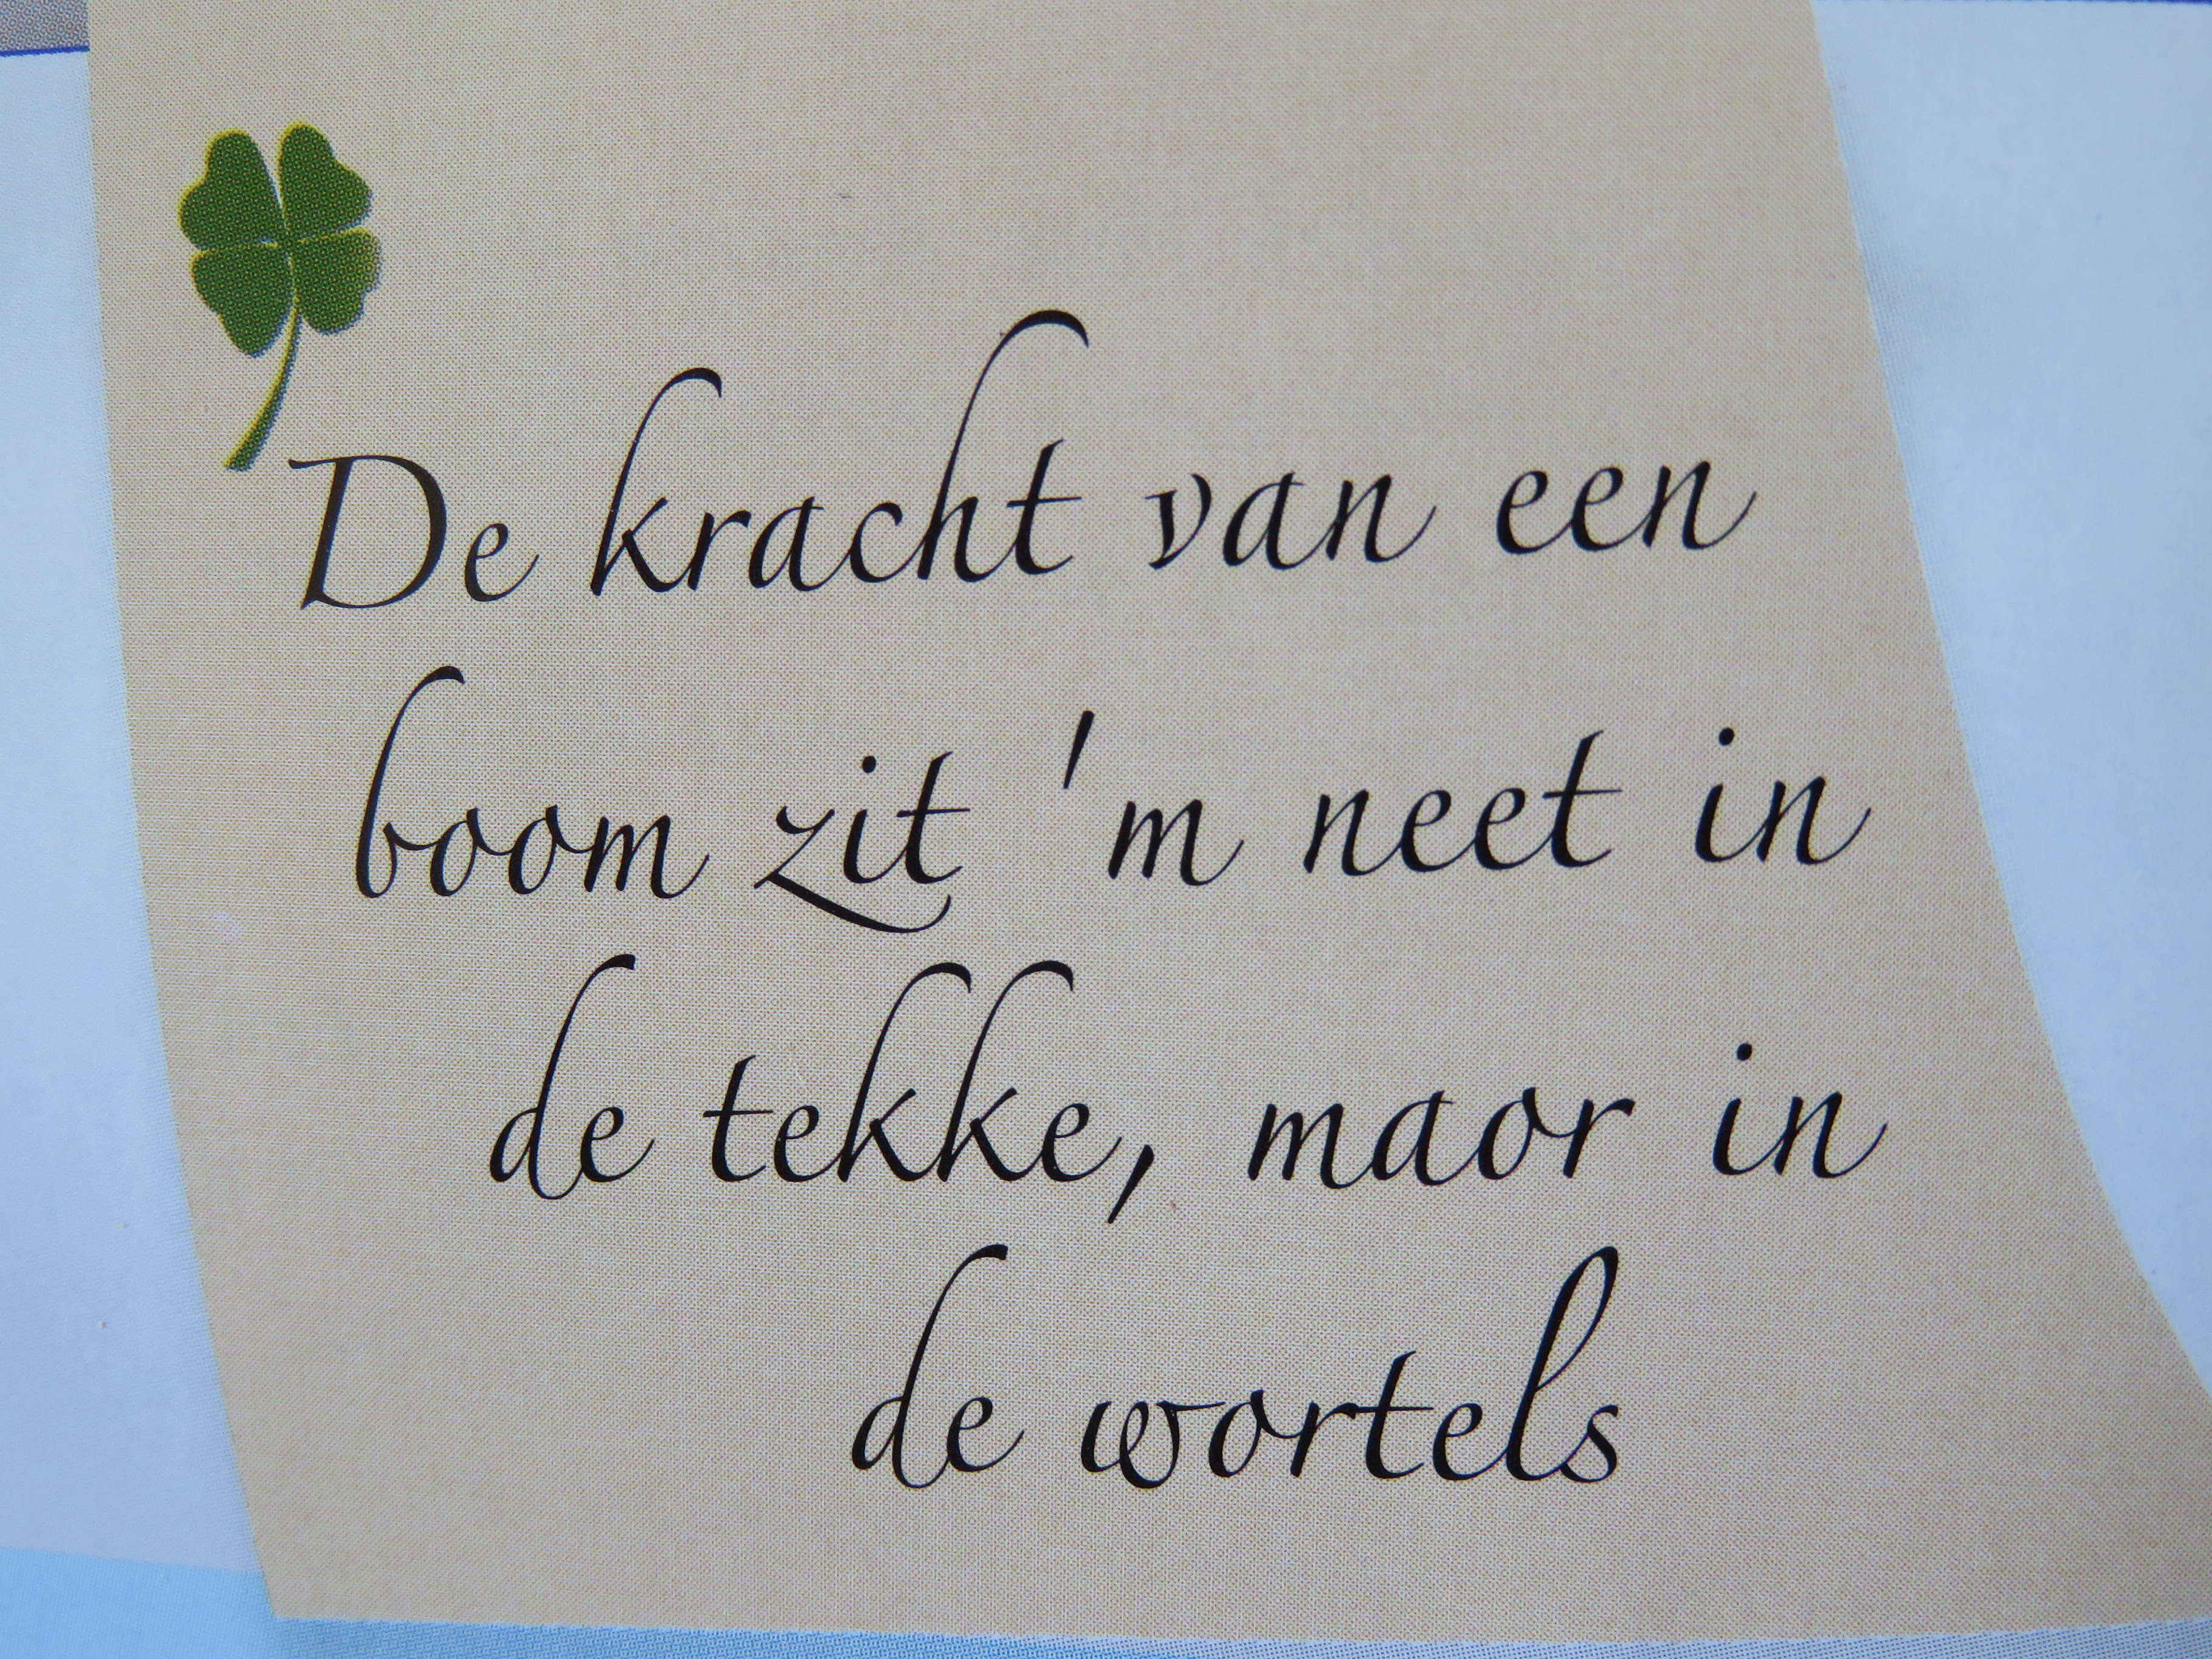 De kracht van een
boom zit 'm neet in
de tekke, maor in
de wortels